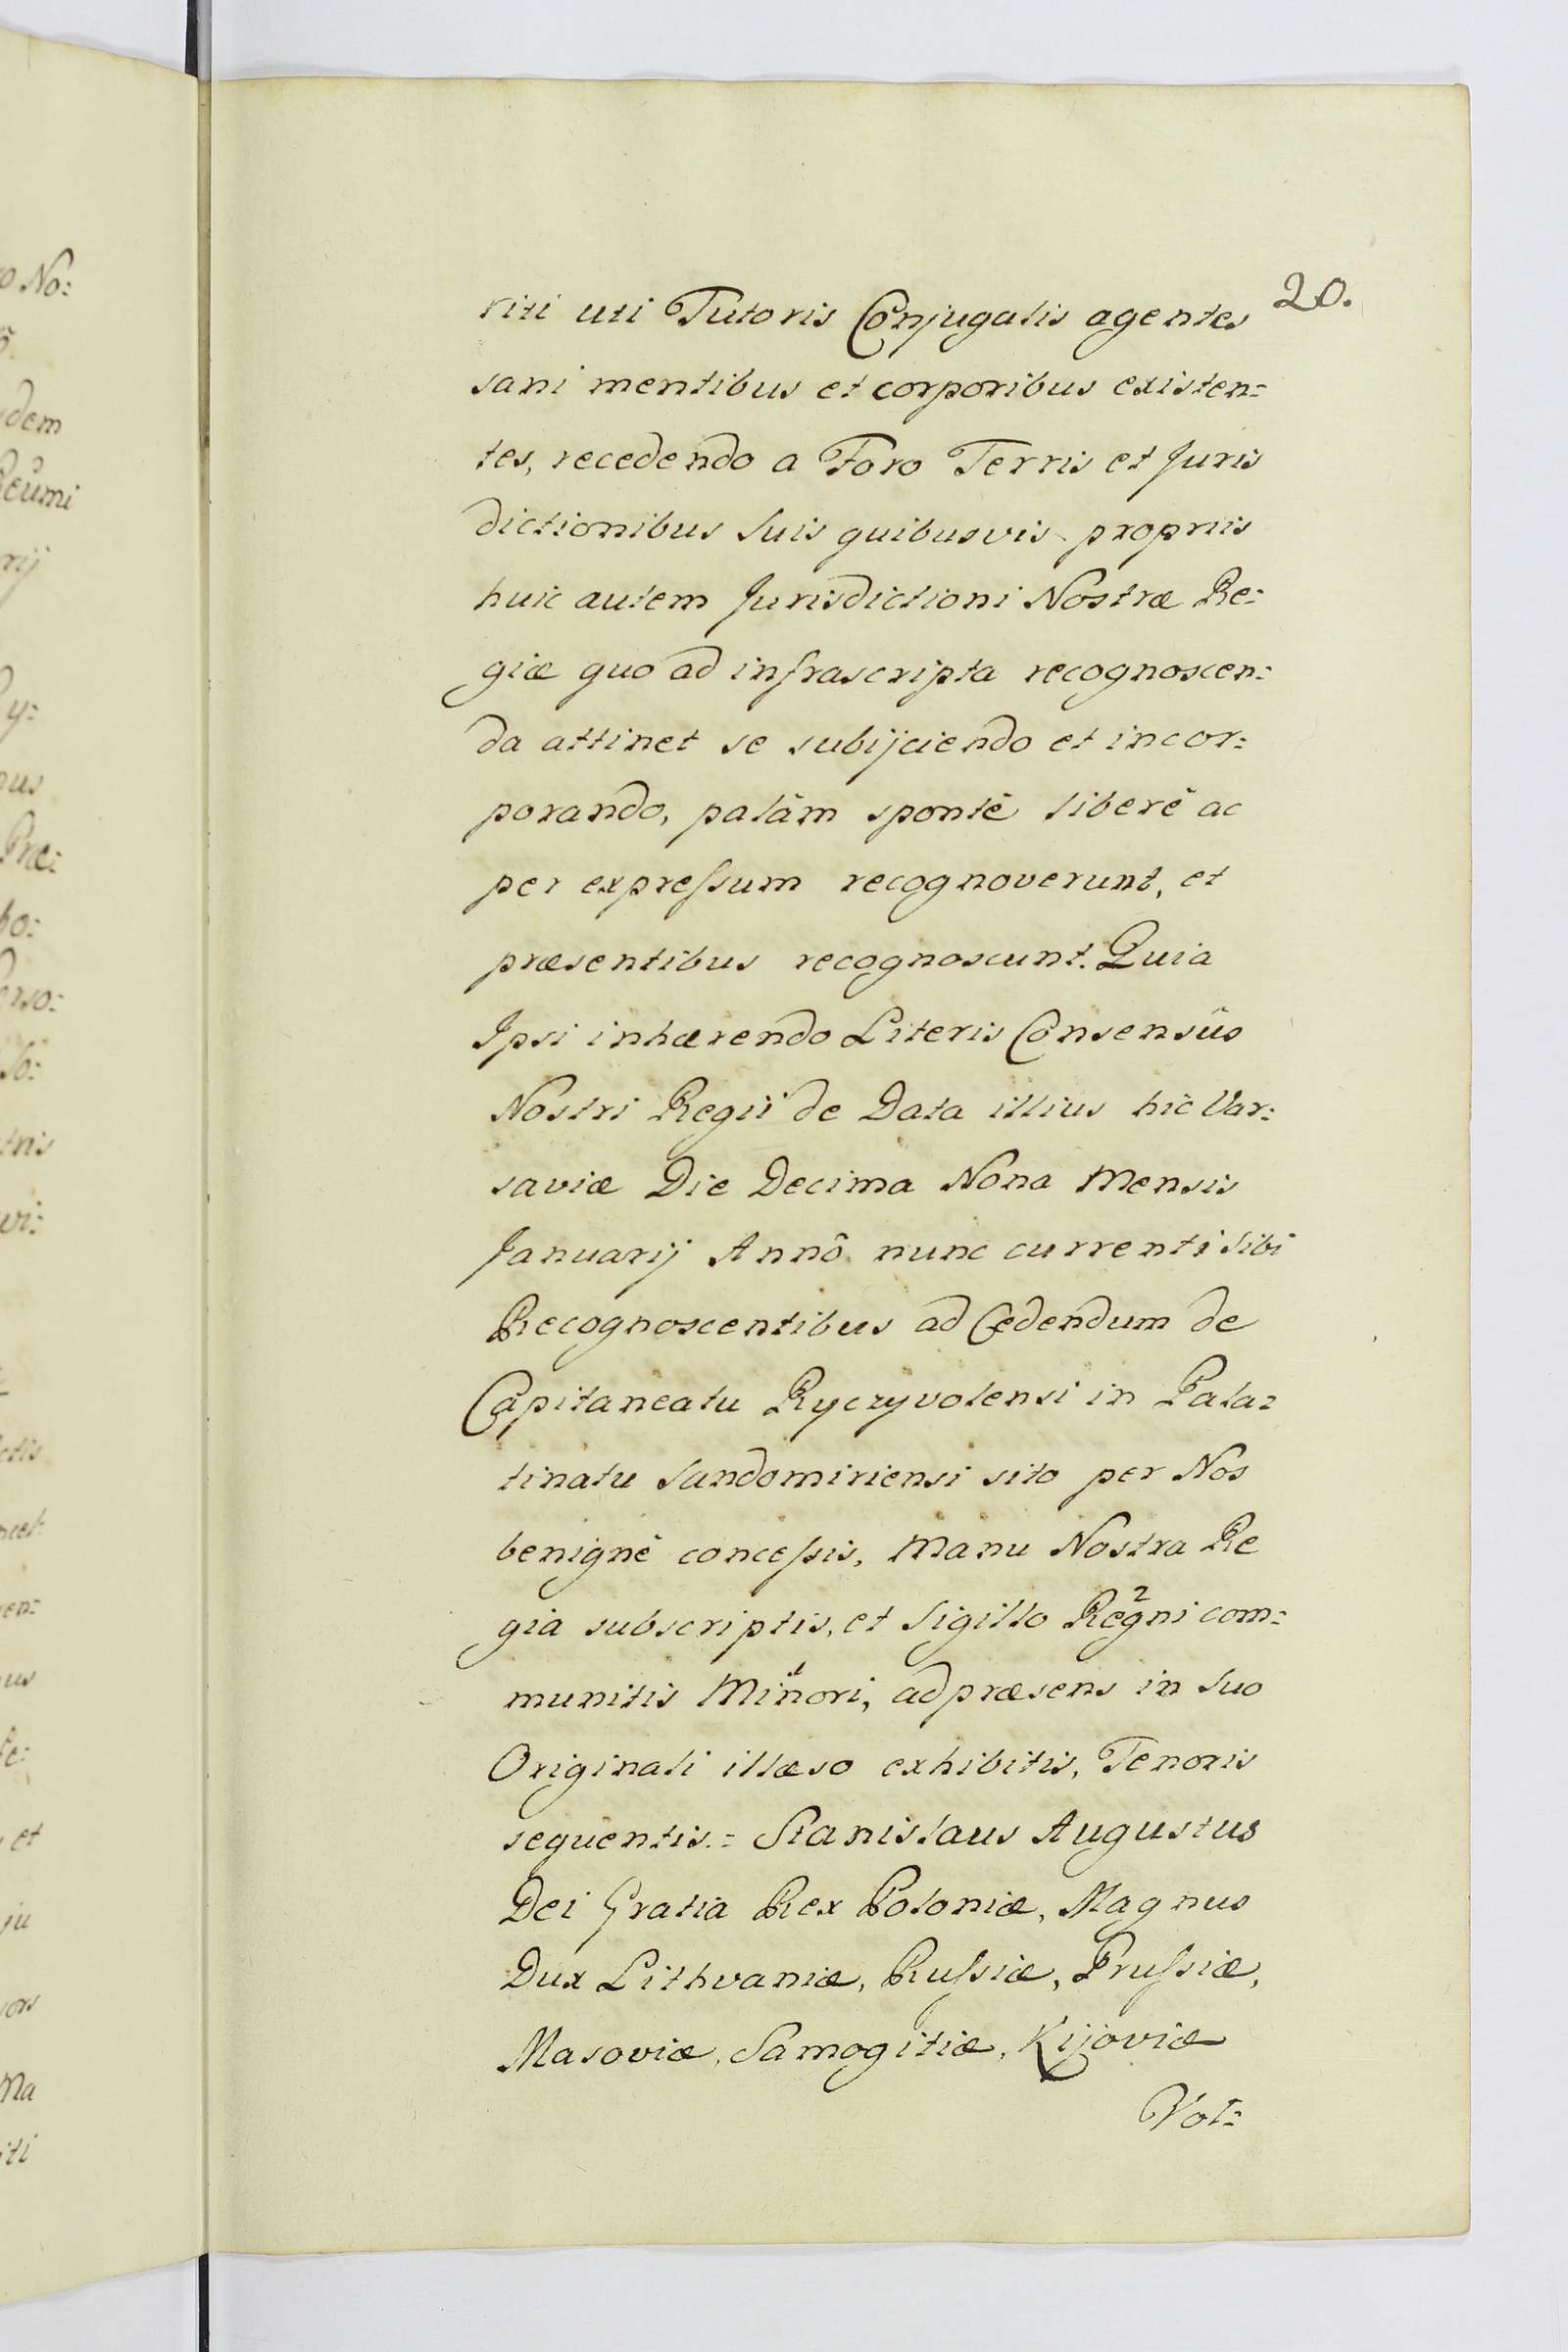 20.
riti uti Tutoris Conjugalis agentes
sani mentibus et corporibus existen=
tes, recedendo a Foro Terris et Juris
dictionibus suis quibusvis propriis
huic autem Jurisdictioni Nostræ Re=
giæ quo ad infrascripta recognoscen=
da attinet se subijciendo et incor=
porando, palâm spontè liberè ac
per expreſsum recognoverunt, et
præsentibus recognoscunt. Quia
Ipsi inhærendo Literis Consensûs
Nostri Regii de Data illius hic Var=
saviæ Die Decima Nona Mensis
Januarij Annô nunc currenti sibi
Recognoscentibus ad Cedendum de
Capitaneatu Ryczyvolensi in Pala=
tinatu Sandomiriensi sito per Nos
benignè conceſsis, Manu Nostra Re
gia subscriptis, et Sigillo Regni 2 com=
munitis Minori 1, ad præsens in suo
Originali illæso exhibitis, Tenoris
sequentis.= Stanislaus Augustus
Dei Gratia Rex Poloniæ, Magnus
Dux Lithvaniæ, Ruſsiæ, Pruſsiæ,
Masoviæ, Samogitiæ, Kijoviæ
Vol=
o No:
dem
eumi
rij
y=
us
Præ:
bo:
erso:
so:
tris
vi:
ctis
en=
us
et
ju
Ma
iti